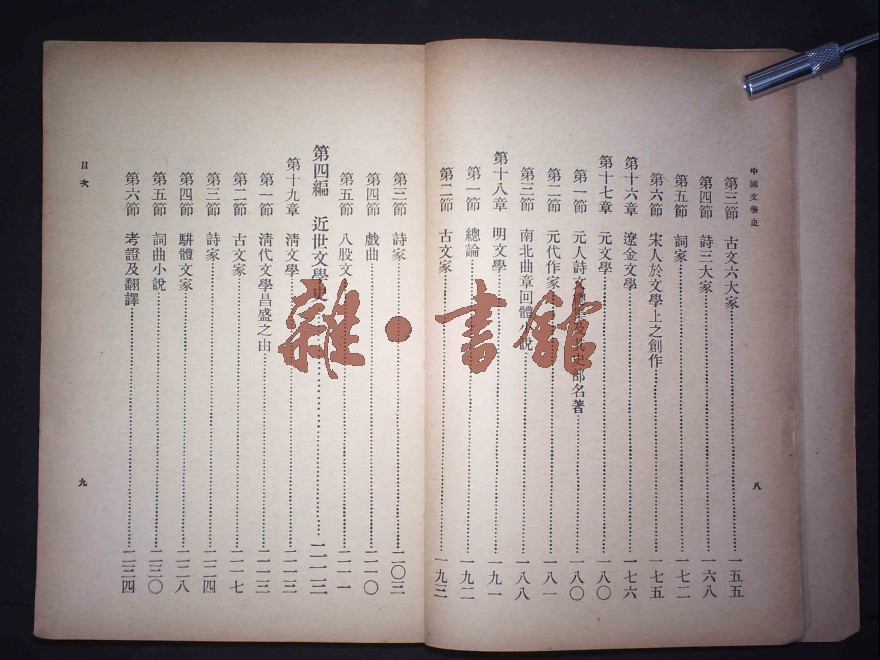 中國文學史
第三節 古文六大家 一五五
第四節 詩三大家 一六八
第五節 詞家 一七二
第六節 宋人於文學上之創作 一七五
第十六章 遼金文學 一七六
第十七章 元文學 一八〇
第一節 元人詩文總集及其史部名著 一八〇
第二節 元代作家 一八一
第三節 南北曲章回體小說 一八八
第十八章 明文學 一九一
第一節 總論 一九二
第二節 古文家 一九三
八
第三節 詩家 二〇三
第四節 戲曲 二一〇
第五節 八股文 二一一
第四編 近世文學史 二一三
第十九章 清文學 二一三
第一節 清代文學昌盛之由 二一三
第二節 古文家 二一七
第三節 詩家 二二四
第四節 駢體文家 二二八
第五節 詞曲小說 二三〇
第六節 考證及翻譯 二三四
目次
九
雜·書館